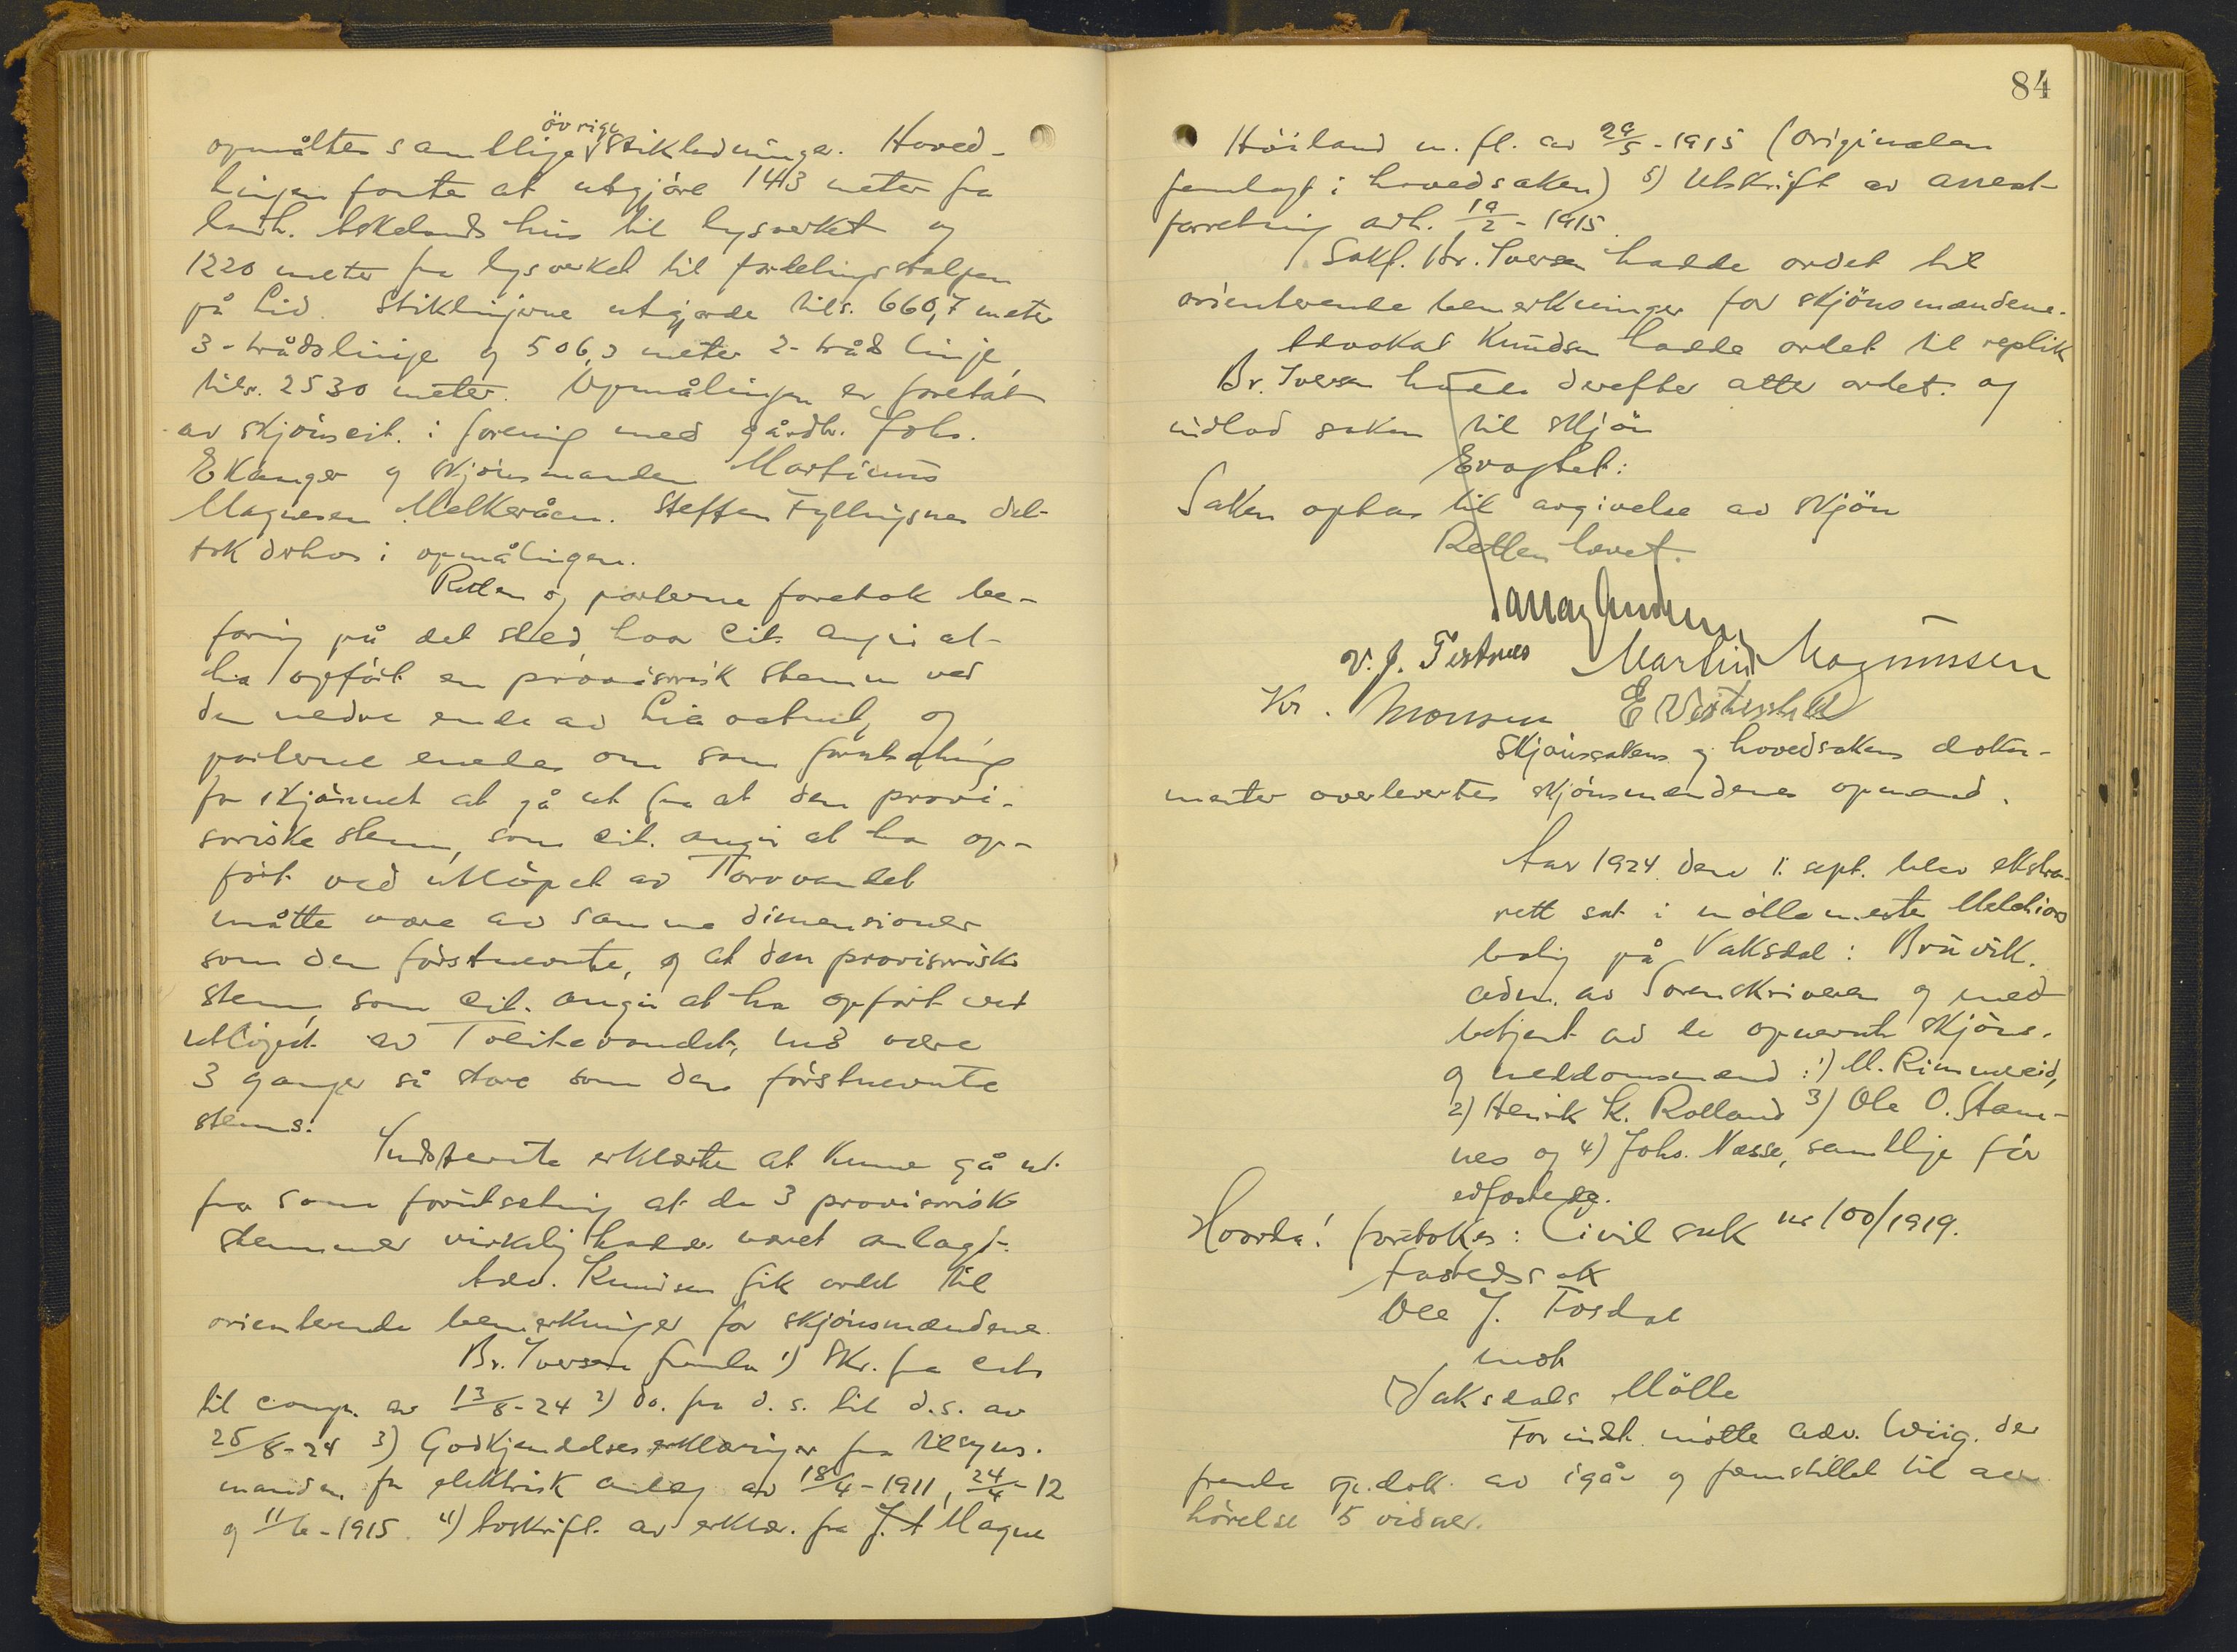 opmåltes samtlige övrige Stikledninger. Hoved-
linjen fantes at utgjöre 1413 meter fra
landh. Askelands hus til lysverket og
1220 meter fra lysverket til fordelingsstolpen
på Lid. Stiklinjerne utgjorde tils. 660,7 meter
3-trådslinje og 506,3 meter 2-tråds linje,
tils. 2530 meter. Opmålingen er foretat
av skjönscit. i forening med gårdbr. Johs.
Ekanger og skjönsmanden Martinus
Magnesen Melkeråen. Steffen Fyllingsnes del-
tok derhos i opmålingen.
Retten og parterne foretok be-
faring på det sted, hvor Cit. angir at
ha opfört en provisorisk stemm ved
den nedre ende av Liavatnet, og
parterne enedes om som forutsetning
for skjönnet at gå ut fra at den provi-
soriske stem, som cit. angir at ha op-
fört ved utlöpet av Torvvandet
måtte være av samme dimensioner
som den förstnevnte, og at den provisoriske
stem, som cit. angir at ha opfört ved
utlöpet av Tveitevandet, må være
3 ganger så store som den förstnevnte
stems.
Indstevnte erklærte at kunne gå ut
fra som forutsetning at de 3 provisoriske
stemmer virkelig hadde været anlagt.
Adv. Knudsen fik ordet til
orienterende bemerkninger for skjönsmændene.
Br. Iversen fremla 1) Skr. fra cit.
til comp. av 13/8-24 2) do. fra d.s. til d.s. av
25/8-24 3) Godkjendelseserklæringer fra tilsyns-
manden for elektrisk anlæg av 18/4-1911, 24/4-12
og 11/6-1915. 4) Avskrift av erklær. fra J. A Magne
84
Höiland m. fl. av 29/5-1915 (originalen
fremlagt i hovedsaken) 5) Utskrift av arrest-
forretning avh. 19/2-1915.
Sakf. Br. Iversen hadde ordet til
orienterende bemerkninger for skjönsmændene.
Advokat Knudsen hadde ordet til replik
Br. Iversen hadde derefter atter ordet og
indlod saken til skjön
Eragtet:
Saken optas til avgivelse av skjön
Retten hævet.
V. J. Martin Magnussen
Kr. Monsen E
Skjönssakens og hovedsakens doku-
menter overlevertes skjönsmændenes opmand.
Aar 1924 den 1. sept. blev ekstra-
rett sat i möllemester Melchiors
bolig på Vaksdal i Bruvik.
Adm. av Sorenskriveren og med
betjent av de opnævnte skjöns-
og meddomsmænd: 1) M. Rimmereid,
2) Henrik K. Rolland 3) Ole O. Stam-
nes og 4) Johs. Nesse, samtlige för
edfæstede.
Hvorda! foretokes: Civil sak nr 100/1919.
Aastedssak
Ole J. Fosdal
mot
Vaksdals Mölle
For indst. mötte adv. Wiig. der
fremla op.dok. av igår og fremstillet til av-
hörelse 5 vidner.